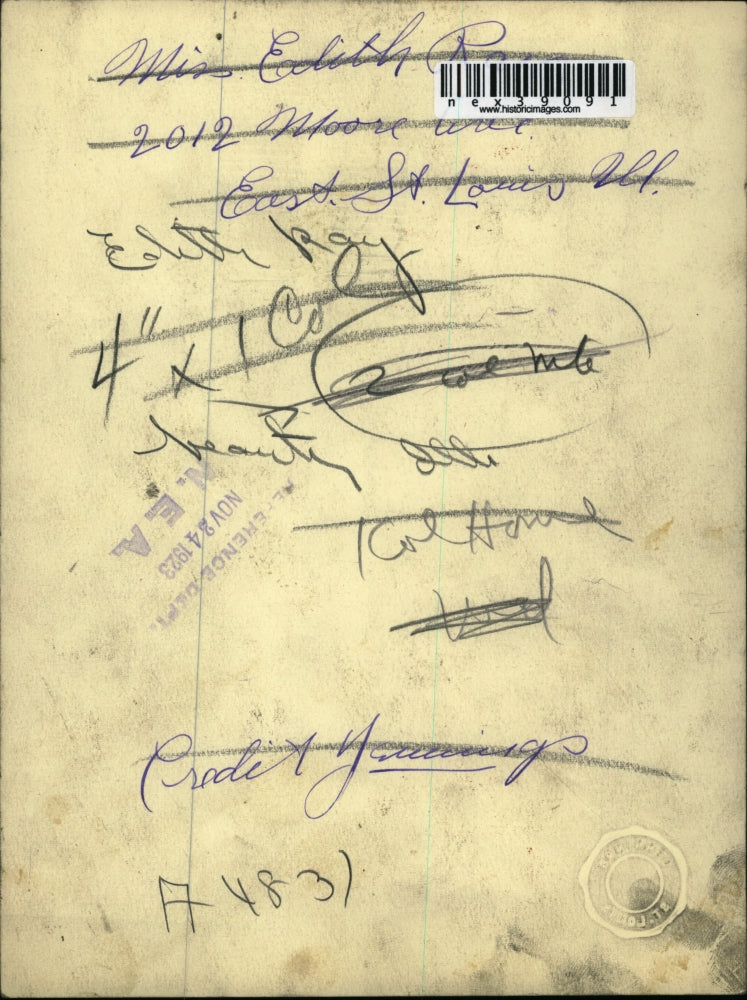 Miss Edith
nex39091
www.historicimages.com
2012 Moore ave.
East. St. Louis Ill.
Edith Ray
4" x 1 Col
2 col
beauty
N. E. A.
NOV 24 1923
REFERENCE DEPT.
Used
Credit Jennings
A 4831